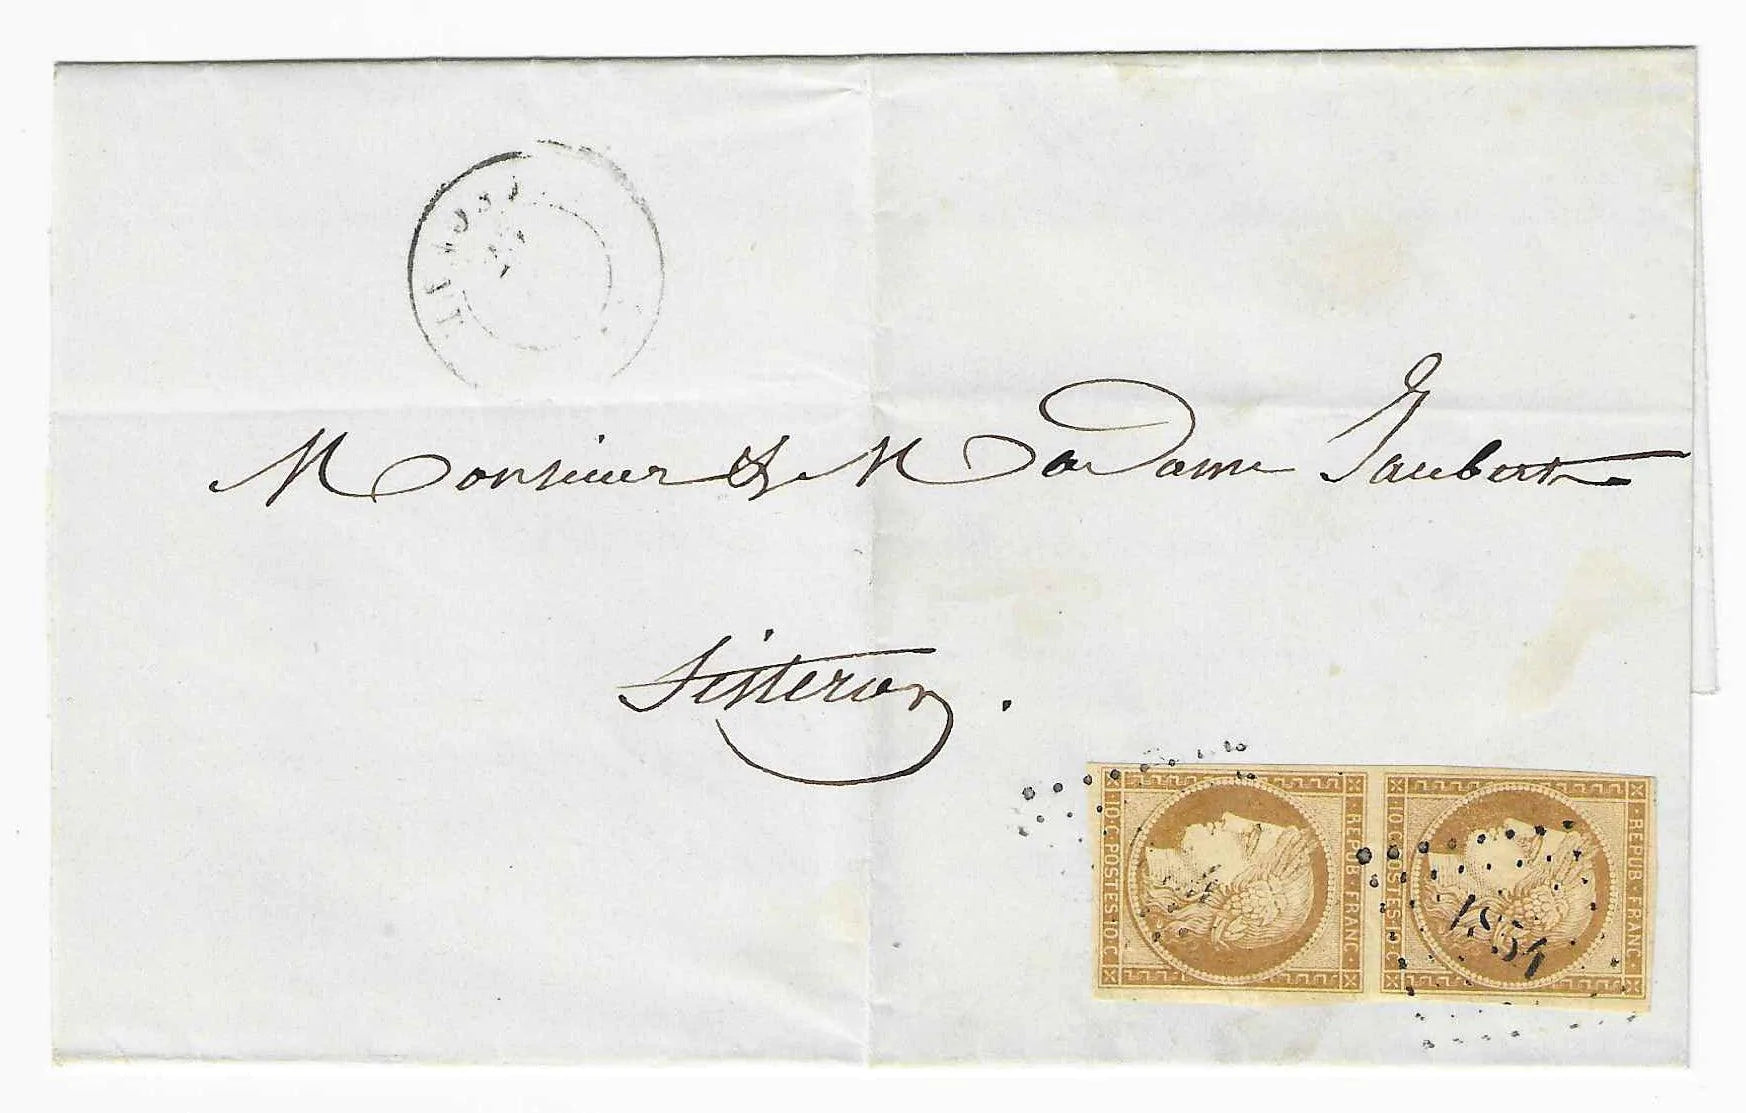 Monsieur & Madame Jaubert
Sisteron.
10·C·POSTES·10·C· REPUB·FRANC·
10·C·POSTES·10·C· REPUB·FRANC·
1854